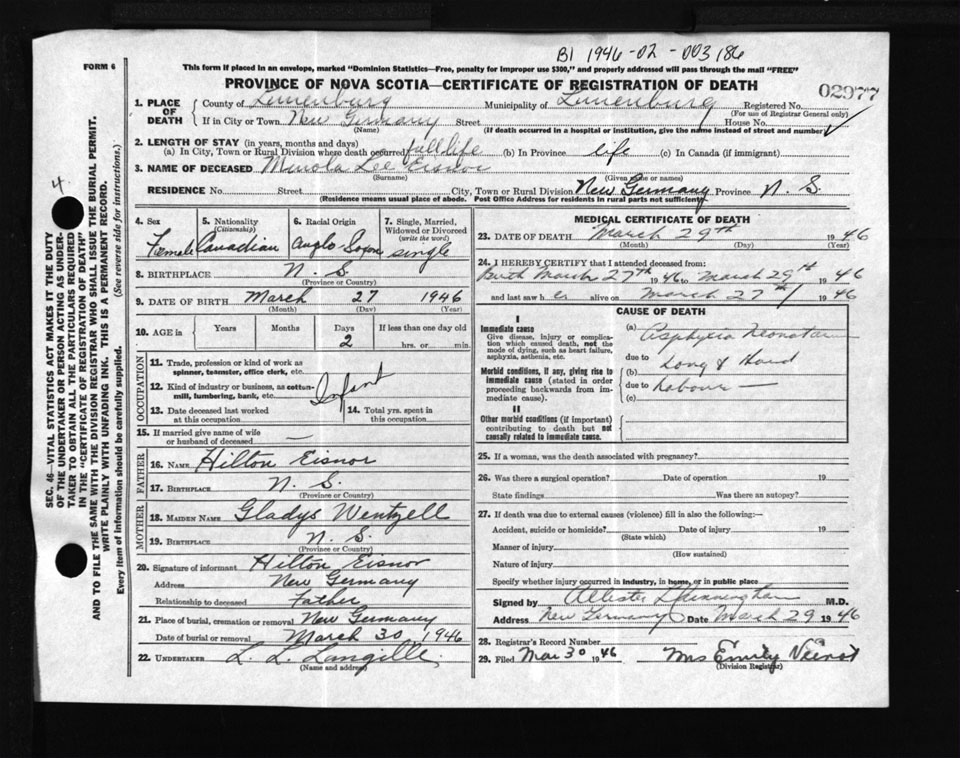 B1 1946-02-003186
FORM 6
This form if placed in an envelope, marked "Dominion Statistics—Free, penalty for improper use $300," and properly addressed will pass through the mail "FREE"
PROVINCE OF NOVA SCOTIA—CERTIFICATE OF REGISTRATION OF DEATH
02977
1. PLACE OF DEATH
County of Lunenburg Municipality of Lunenburg Registered No.
(For use of Registrar General only)
If in City or Town New Germany Street House No.
(Name) (If death occurred in a hospital or institution, give the name instead of street and number)
2. LENGTH OF STAY (in years, months and days)
(a) In City, Town or Rural Division where death occurred full life (b) In Province life (c) In Canada (if immigrant)
3. NAME OF DECEASED Lee Eisnor
(Surname) (Given name or names)
RESIDENCE No. Street City, Town or Rural Division New Germany Province N. S.
(Residence means usual place of abode. Post Office Address for residents in rural parts not sufficient)
4. Sex 5. Nationality (Citizenship) 6. Racial Origin 7. Single, Married, Widowed or Divorced (write the word)
Female Canadian Anglo Saxon single
8. BIRTHPLACE N. S.
(Province or Country)
9. DATE OF BIRTH March 27 1946
(Month) (Day) (Year)
10. AGE in Years Months Days If less than one day old
2 hrs. or min.
OCCUPATION
11. Trade, profession or kind of work as spinner, teamster, office clerk, etc.
12. Kind of industry or business, as cotton-mill, lumbering, bank, etc.
Infant
13. Date deceased last worked at this occupation 14. Total yrs. spent in this occupation
15. If married give name of wife or husband of deceased —
FATHER
16. NAME Hilton Eisnor
17. BIRTHPLACE N. S.
(Province or Country)
MOTHER
18. MAIDEN NAME Gladys Wentzell
19. BIRTHPLACE N. S.
(Province or Country)
20. Signature of informant Hilton Eisnor
Address New Germany
Relationship to deceased Father
21. Place of burial, cremation or removal New Germany
Date of burial or removal March 30, 1946
22. UNDERTAKER L. L. Langille
(Name and address)
MEDICAL CERTIFICATE OF DEATH
23. DATE OF DEATH March 29th 1946
(Month) (Day) (Year)
24. I HEREBY CERTIFY that I attended deceased from:
Birth March 27th 1946 to March 29th 1946
and last saw her alive on March 27th 1946
CAUSE OF DEATH
I
Immediate cause
Give disease, injury or complication which caused death, not the mode of dying, such as heart failure, asphyxia, asthenia, etc.
Morbid conditions, if any, giving rise to immediate cause (stated in order proceeding backwards from immediate cause).
II
Other morbid conditions (if important) contributing to death but not causally related to immediate cause.
(a) Asphyxia
due to
(b) Long & Hard
due to Labour —
(c)
25. If a woman, was the death associated with pregnancy?
26. Was there a surgical operation? Date of operation 19
State findings Was there an autopsy?
27. If death was due to external causes (violence) fill in also the following:—
Accident, suicide or homicide? Date of injury 19
(State which)
Manner of injury
(How sustained)
Nature of injury
Specify whether injury occurred in industry, in home, or in public place
Signed by M.D.
Address New Germany Date March 29 1946
28. Registrar's Record Number
29. Filed Mar 30 1946 Mrs Emily
(Division Registrar)
4.
SEC. 46—VITAL STATISTICS ACT MAKES IT THE DUTY
OF THE UNDERTAKER OR PERSON ACTING AS UNDER-
TAKER TO OBTAIN ALL THE PARTICULARS REQUIRED
IN THE "CERTIFICATE OF REGISTRATION OF DEATH"
AND TO FILE THE SAME WITH THE DIVISION REGISTRAR WHO SHALL ISSUE THE BURIAL PERMIT.
WRITE PLAINLY WITH UNFADING INK. THIS IS A PERMANENT RECORD.
Every item of information should be carefully supplied. (See reverse side for instructions.)